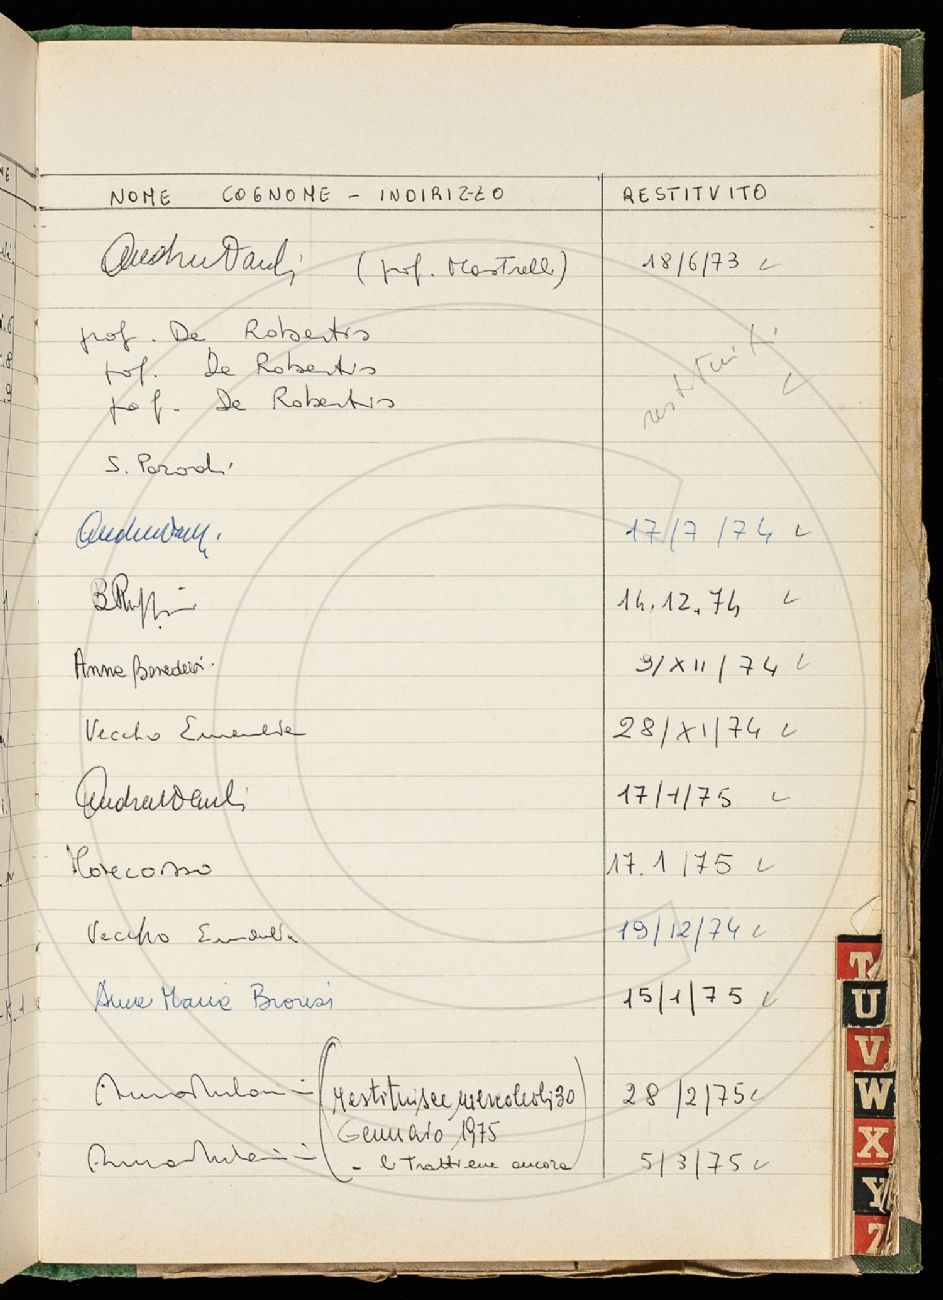 NOME COGNOME - INDIRIZZO RESTITUITO
(prof. Mastrelli) 18/6/73
prof. De Robertis
prof. De Robertis restituiti
prof. De Robertis
S. Parodi
17/7/74
B. Ruffini 14.12.74
Anna Benedetti 9/XII/74
Vecchio 28/XI/74
17/1/75
17.1/75
Vecchio 19/12/74
Anna Maria 15/1/75
(restituisce mercoledì 30 28/2/75
Gennaio 1975
- li trattiene ancora) 5/3/75
T
U
V
W
X
Y
Z